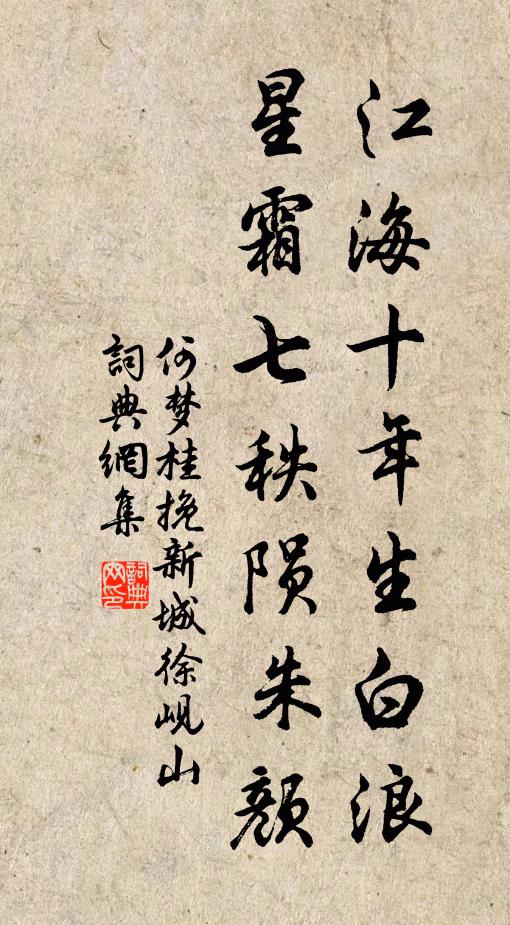 江海十年生白浪
星霜七秩陨朱颜
何梦桂挽新城徐岘山
詞典網集
詞典网印